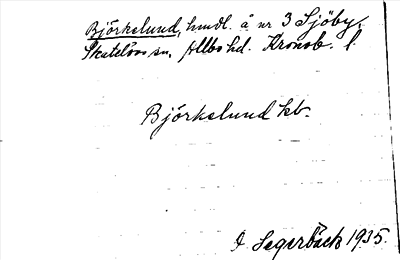 Björkelund, hmdl. å nr 3 Sjöby,
Skatelövs sn, Allbo hd. Kronob. l.
Björkelund kb.
I Segerbäck 1935.